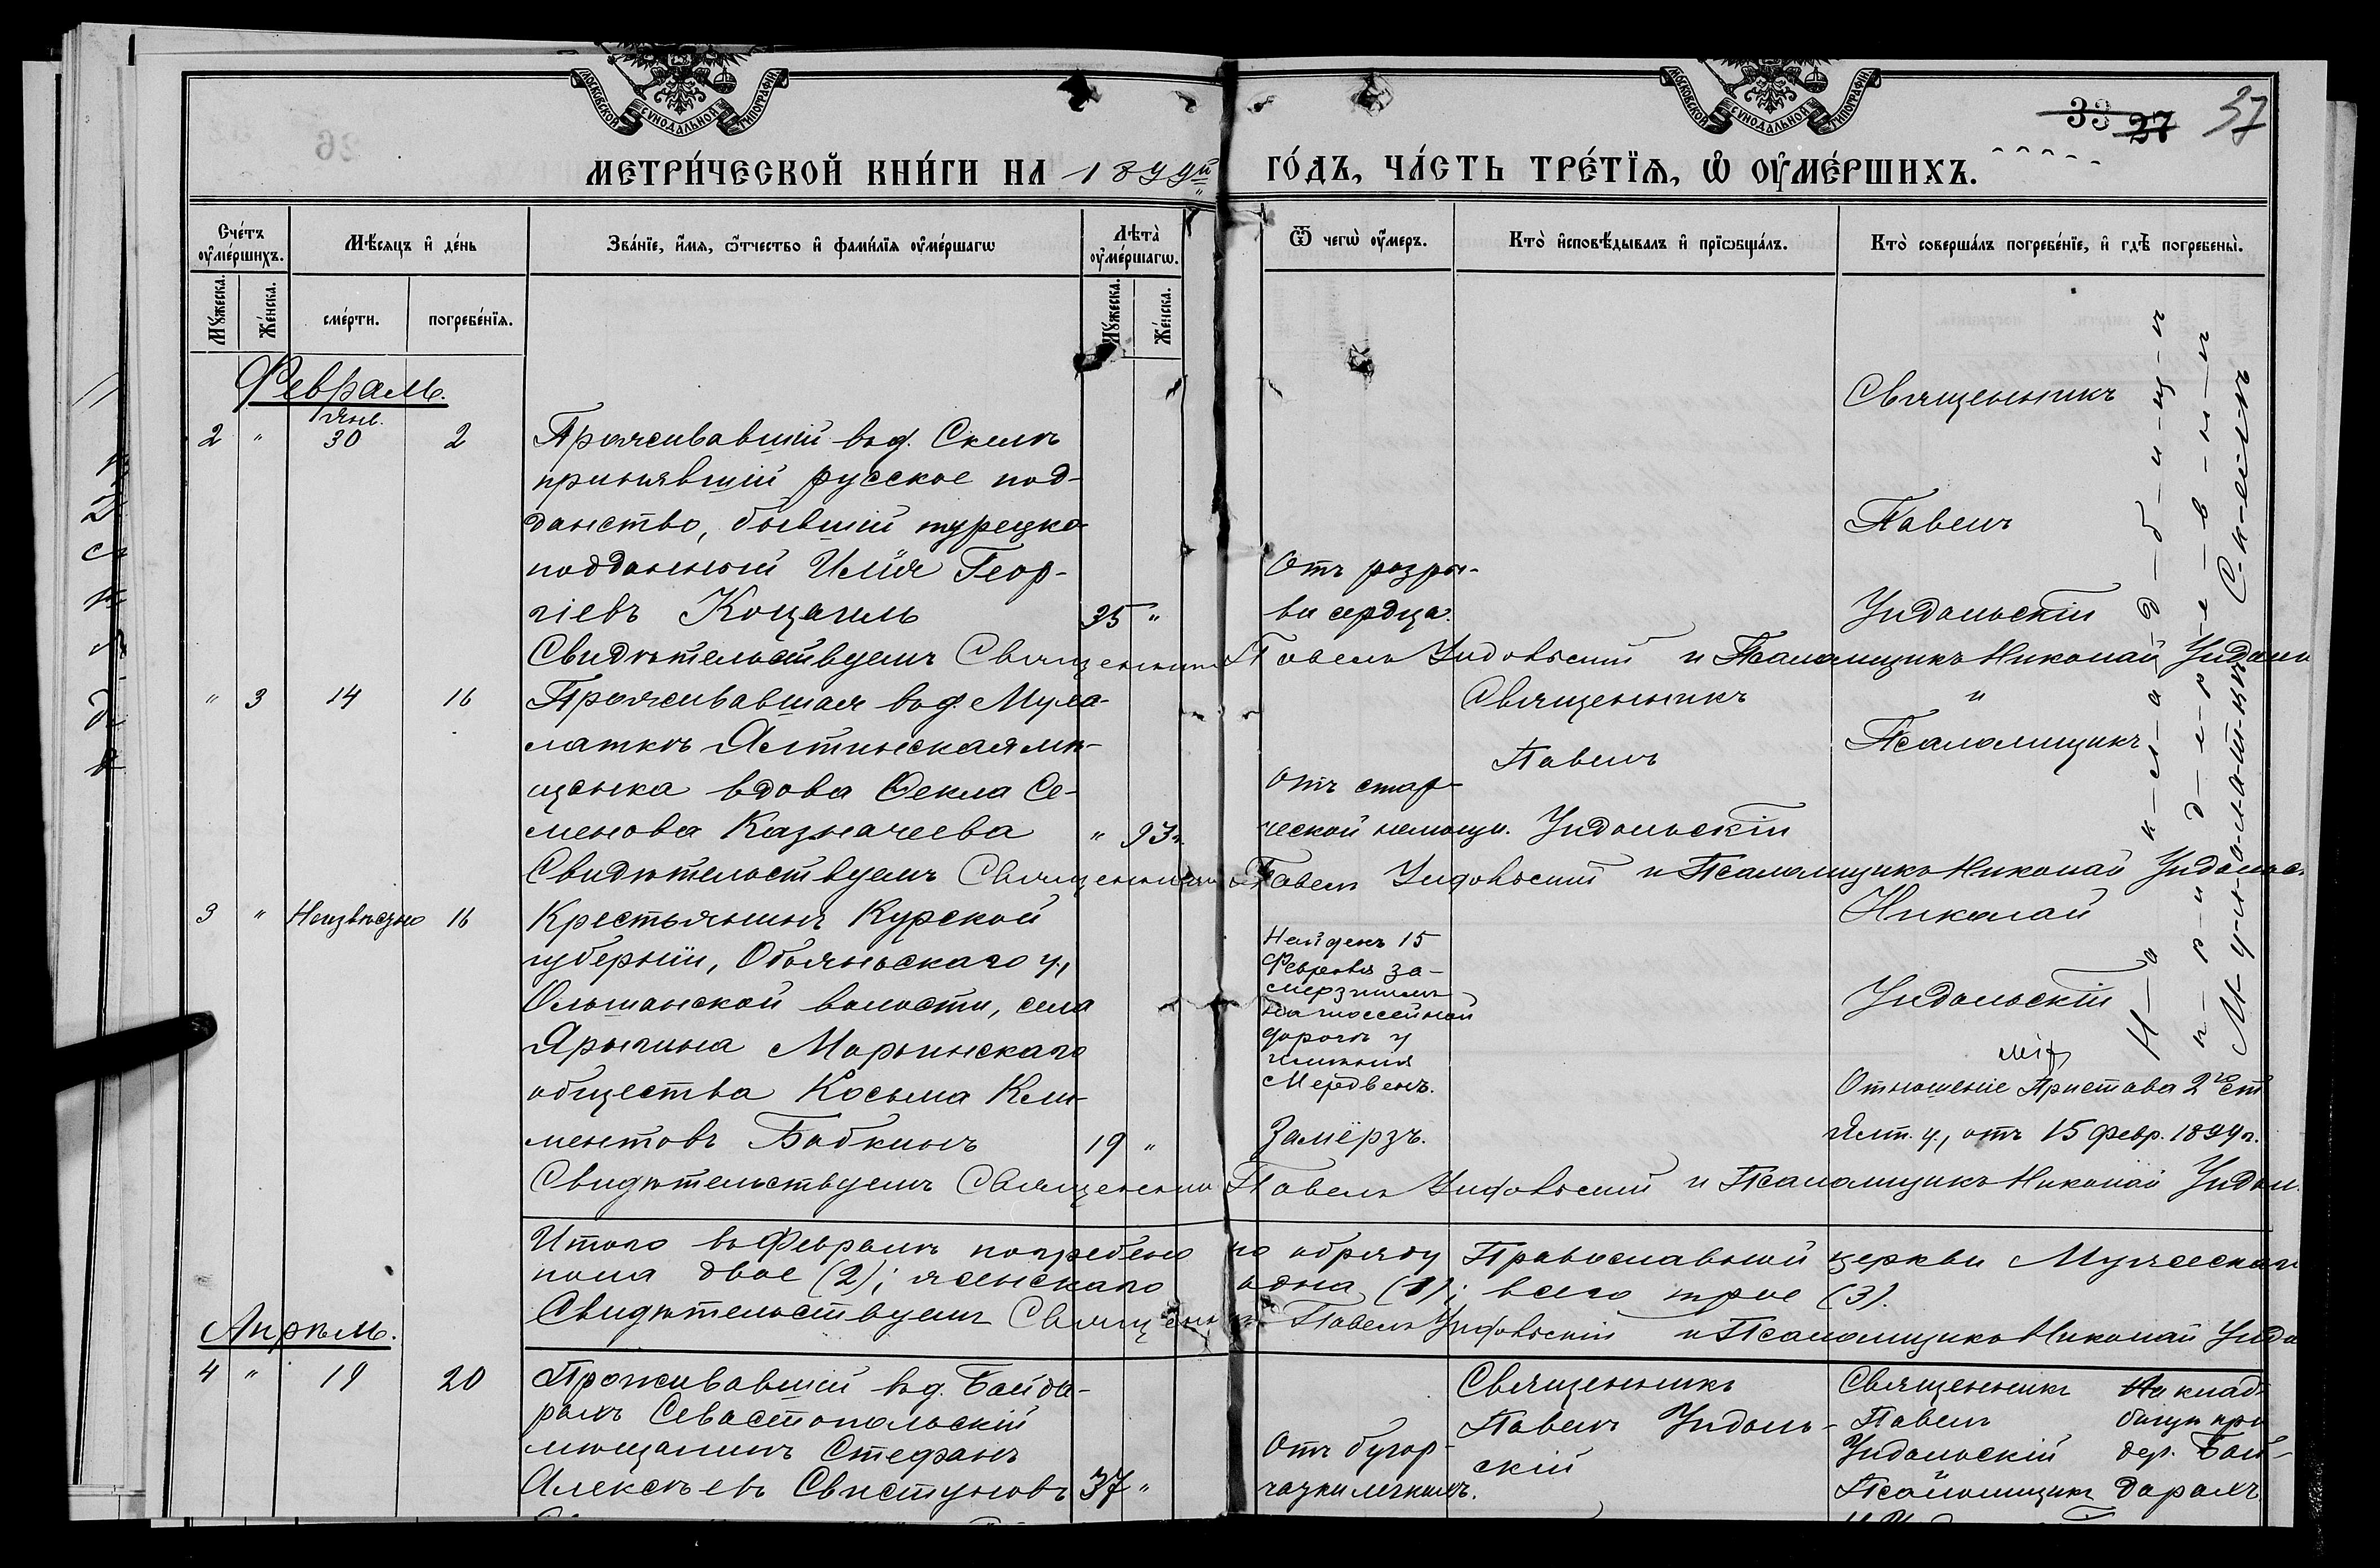 МОСКОВСКОЙ СѴНОДАЛЬНОЙ ТИПОГРАФІИ
МОСКОВСКОЙ СѴНОДАЛЬНОЙ ТИПОГРАФІИ
33 27 37
МЕТРИ́ЧЕСКОЙ КНИ́ГИ НА 1899й ГО́ДЪ, ЧА́СТЬ ТРЕ́ТЇѦ, Ѽ ОУ҆МЕ́РШИХЪ.
Сче́тъ оу҆ме́ршихъ.
Мѣ́сяцъ и҆ де́нь
Зва́нїе, и҆́мя, ѻ҆́тчество и҆ фами́лїя оу҆ме́ршагѡ
Лѣта̀ оу҆ме́ршагѡ.
Ѿ чегѡ̀ оу҆́меръ.
Кто̀ и҆сповѣ́дывалъ и҆ прїѡбща́лъ.
Кто̀ соверша́лъ погребе́нїе, и҆ гдѣ̀ погребены̀.
Му́жеска.
Же́нска.
сме́рти.
погребе́нїя.
Му́жеска.
Же́нска.
Февраль.
янв.
2 " 30 2
Проживавшій въ д. Скеляхъ
принявшій русское под-
данство, бывшій турецко-
подданный Илія Геор-
гіевъ Коцагиль 35 "
Отъ разры-
ва сердца.
Священникъ
Павелъ
Ундольскій
Свидѣтельствуемъ Священникъ Павелъ Ундольскій и Псаломщикъ Николай Ундоль
" 3 14 16
Проживавшая въ д. Муха-
латкѣ Ялтинская мѣ-
щанка вдова Ѳекла Се-
менова Казначеева " 93 л.
Отъ стар-
ческой немощи.
Священникъ
Павелъ
Ундольскій
и
Псаломщикъ
Свидѣтельствуемъ Священникъ Павелъ Ундольскій и Псаломщикъ Николай Ундольс
3 " Неизвѣстно 16
Крестьянинъ Курской
губерніи, Обоянскаго у.,
Ольшанской волости, села
Ярыгина Марьинскаго
общества Косьма Кли-
ментовъ Бабкинъ 19 "
Найденъ 15
Февраля за-
мерзшимъ
на шоссейной
дорогѣ у
имѣнія
Мердвень.
Замёрзъ.
Николай
Ундольскій
Отношеніе Пристава 2го Ст
Ялт. у., отъ 15 февр. 1899 г.
На кладбищахъ
при деревняхъ
Мухалаткѣ Скеляхъ
Свидѣтельствуемъ Священникъ Павелъ Ундольскій и Псаломщикъ Николай Ундол.
Итого въ Февралѣ погребено по обряду Православной церкви Мужескаго
пола двое (2); женскаго одна (1); всего трое (3).
Свидѣтельствуемъ Священникъ Павелъ Ундольскій и Псаломщикъ Николай Ундо
Апрѣль.
4 " 19 20
Проживавшій въ д. Байда-
рахъ Севастопольскій
мѣщанинъ Стефанъ
Алексѣевъ Свистуновъ 37 "
Отъ бугор-
чатки легкихъ.
Священникъ
Павелъ Ундоль-
скій
Священникъ
Павелъ
Ундольскій
Псаломщикъ
На клад-
бищѣ при
дер. Бай-
дарахъ